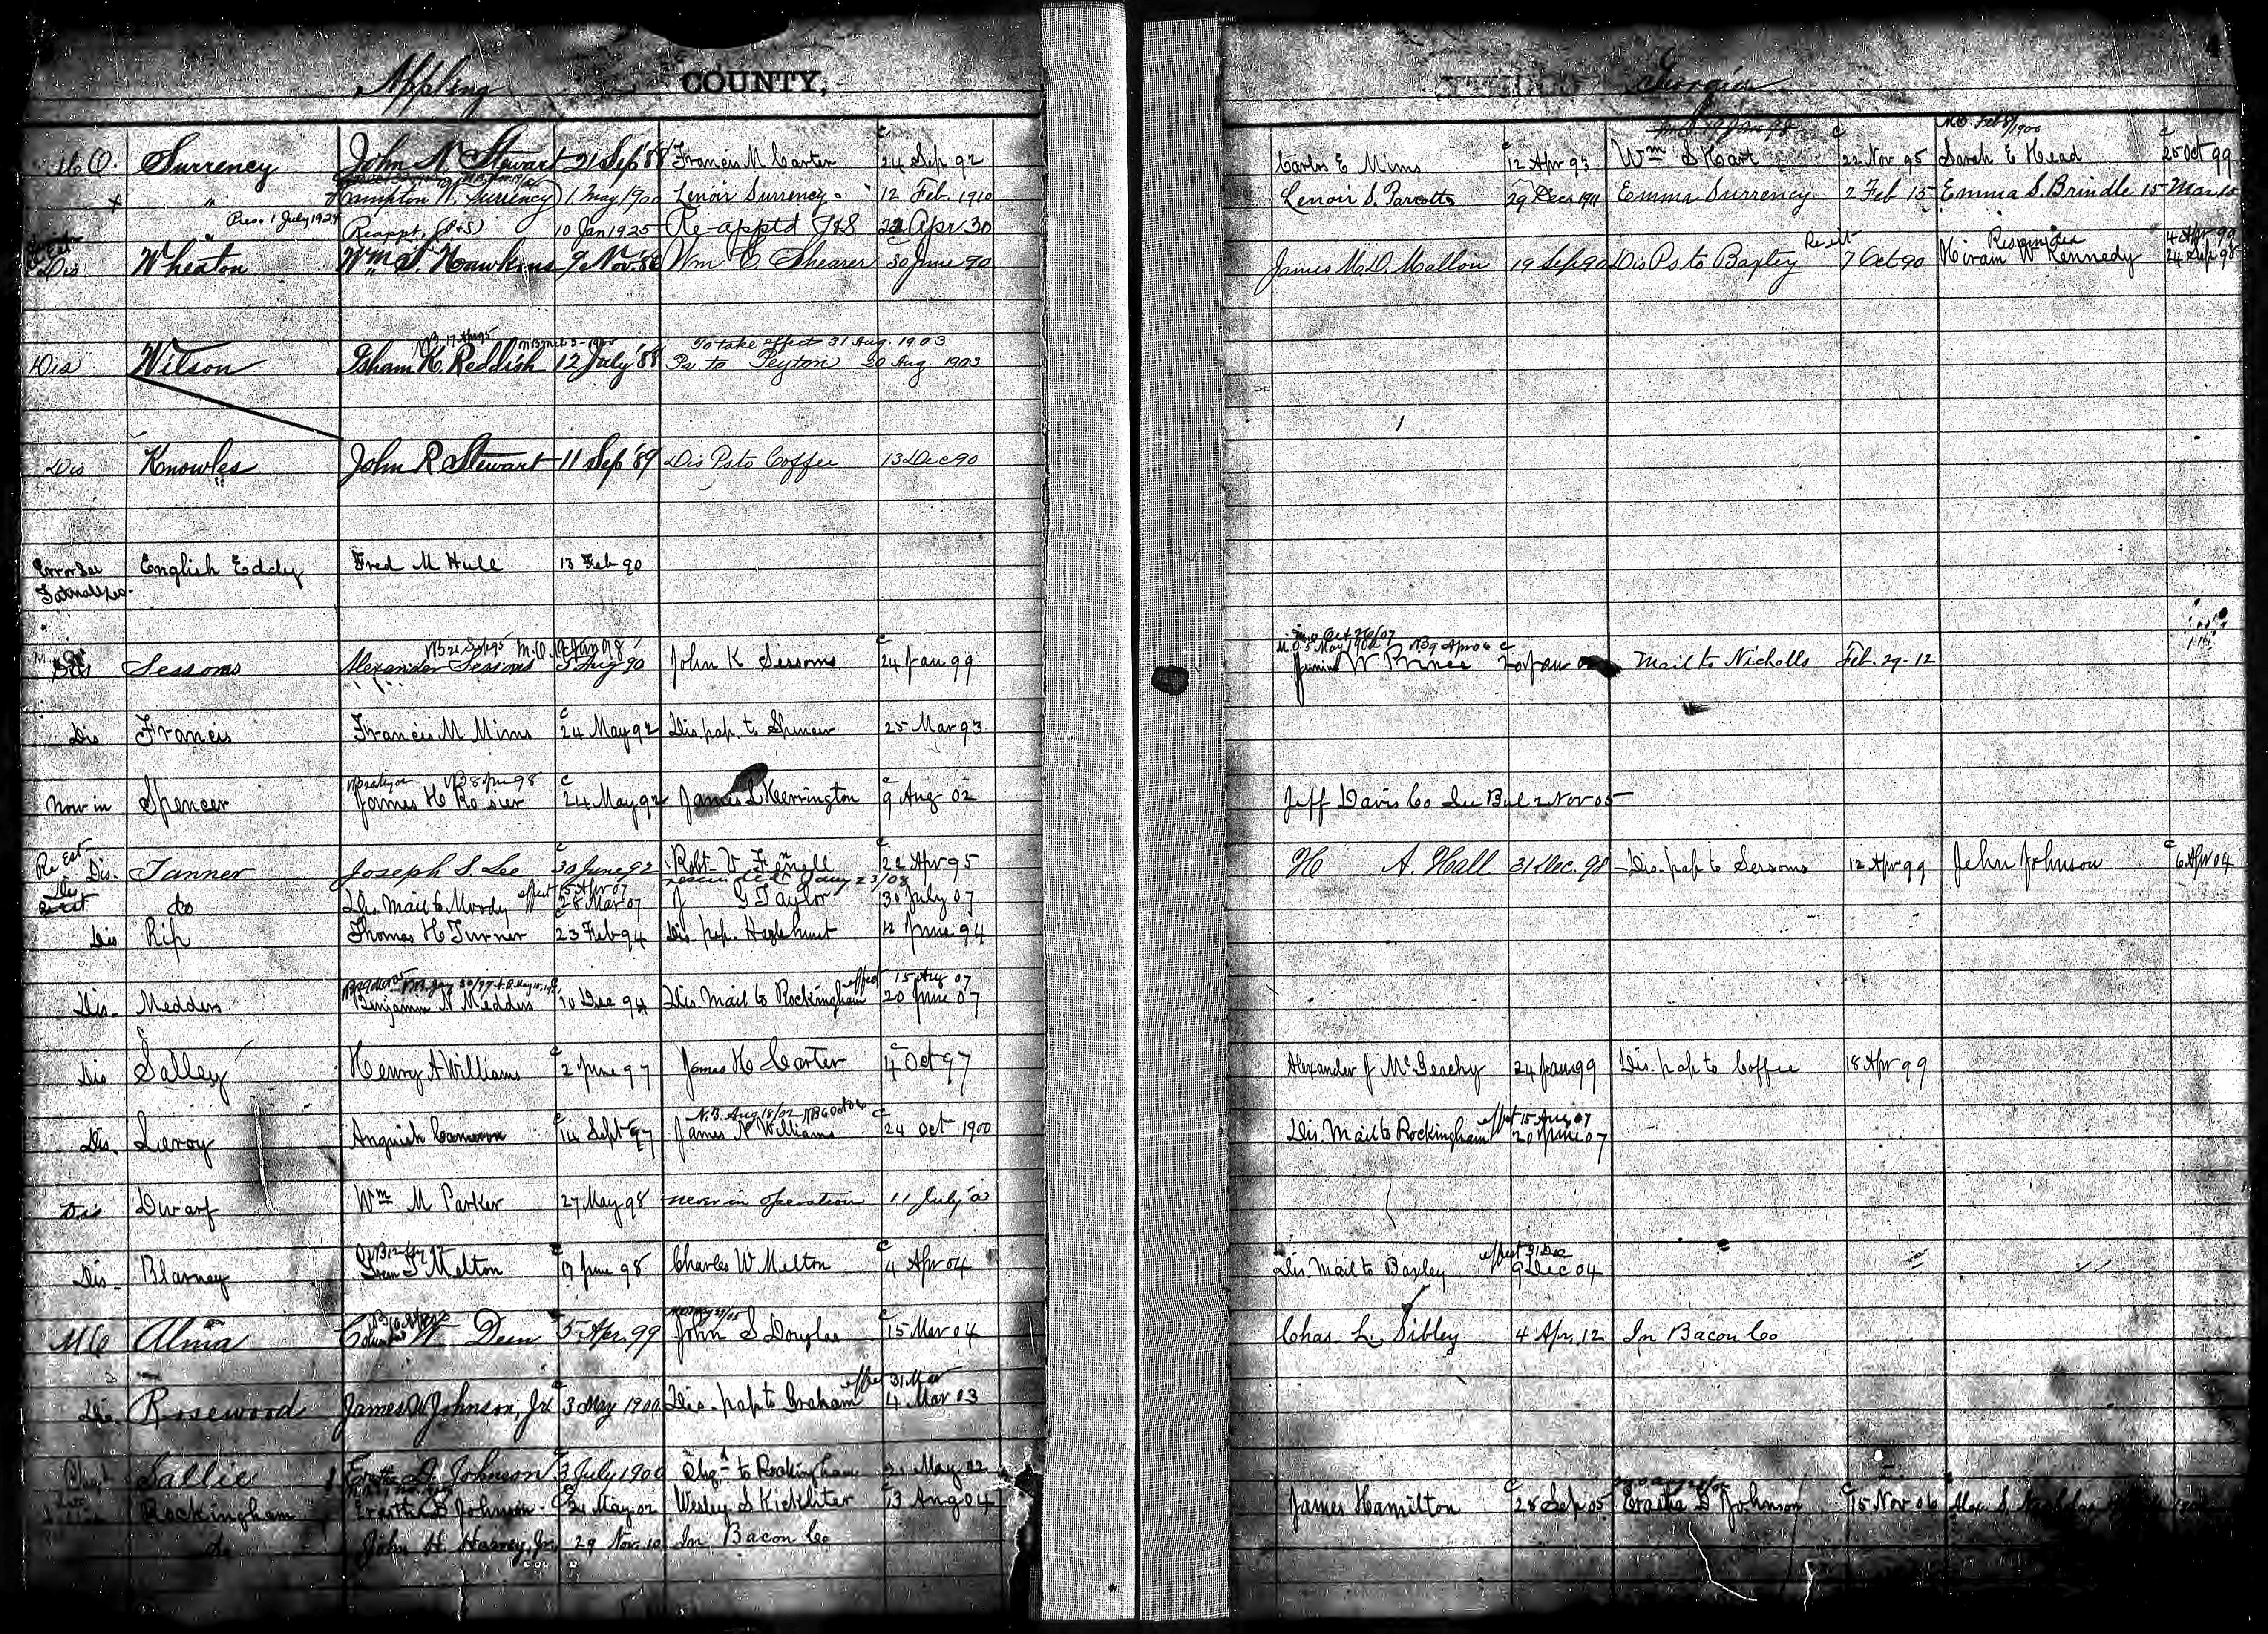 Appling COUNTY, Georgia
M.O. Feb 8/1900
M.O. Surrency John N Stewart 21 Sep '88 Francis M Carter 24 Sep 92 Carlos E Mims 12 Apr 93 Wm S Hart 22 Nov 95 Sarah E Head 25 Oct 99
" Hampton N. Surrency 1 May 1900 Lenoir Surrency 12 Feb. 1910 Lenoir S. Parcotts 29 Decr 1911 Emma Surrency 2 Feb 15 Emma S. Brindle 15 Mar 15
" Pres. 1 July 1924 Reappt. (P&S) 10 Jan 1925 Re-apptd P&S 22 Apr 30
Re est Rescinded 4 Apr 99
Dis Wheaton Wm S. Hawkins 9 Nov. '88 Wm C Shearer 30 June 90 James M.D. Mallon 19 Sep 90 Dis Ps to Baxley 7 Oct 90 Hiram W Kennedy 24 Sep 98
To take effect 31 Aug. 1903
Dis Wilson Isham K. Reddish 12 July '88 Ps to Peyton 20 Aug 1903
Dis Knowles John R Stewart 11 Sep '89 Dis Ps to Coffee 13 Dec 90
Error See English Eddy Fred M Hull 13 Feb 90
Tatnall Co.
NB 21 Sept 95 M.O. 19 Jan 98 M.O. 5 May 1902 NB 9 Apr 06
Dis Sessoms Alexander Sessoms 5 Aug 90 John K Sessoms 24 Jan 99 W Prince Mail to Nicholls Feb. 29-12
Dis Francis Francis M Mims 24 May 92 Dis. pap. to Spencer 25 Mar 93
NB 8 Jun 98
Now in Spencer James H Rosier 24 May 92 James L Herrington 9 Aug 02 Jeff Davis Co See Bul 2 Nov 05
Re Est
Dis. Tanner Joseph S Lee 30 June 92 Robt V Fennell 22 Apr 95 H A. Hall 31 Dec. 98 Dis. pap to Sessoms 12 Apr 99 John Johnson 6 Apr 04
effect 15 Apr 07 rescinded Jany 23/08
do Dis. Mail to Moody 28 Mar 07 J G Taylor 30 July 07
Dis Rip Thomas H Turner 23 Feb 94 Dis. pap. Hazlehurst 12 June 94
effect 15 Aug 07
Dis. Medders Benjamin N Medders 10 Dec 94 Dis. Mail to Rockingham 20 June 07
Dis Salley Henry A Williams 2 June 97 James H Carter 4 Oct 97 Alexander J McGeachy 24 Jan 99 Dis. pap to Coffee 18 Apr 99
N.B. Aug 18/02 NB 6 Oct 06 effect 15 Aug 07
Dis. Leroy Anguish Cameron 14 Sept 97 James N Williams 24 Oct 1900 Dis. Mail to Rockingham 20 June 07
Dis Dwarf Wm M Parker 27 May 98 never in operation 11 July
effect 31 Dec
Dis. Blarney Melton 17 June 98 Charles W Melton 4 Apr 04 Dis. Mail to Baxley 9 Dec 04
MO Alma W. Deen 5 Apr. 99 John S Douglas 15 Mar 04 Chas. L. Sibley 4 Apr, 12 In Bacon Co
effect 31 Mar
Dis. Rosewood James W Johnson, Jr. 3 May 1900 Dis. pap to Graham 4 Mar 03
Sallie Erastus D. Johnson 3 July 1900 Chgd to Rockingham 21 May 02
Rockingham Erastus D Johnson 21 May 02 Wesley S Kicklighter 13 Aug 04 James Hamilton 28 Sep 05 Erastus D Johnson 15 Nov 06
do John H Harvey, Jr. 29 Nov. 10 In Bacon Co